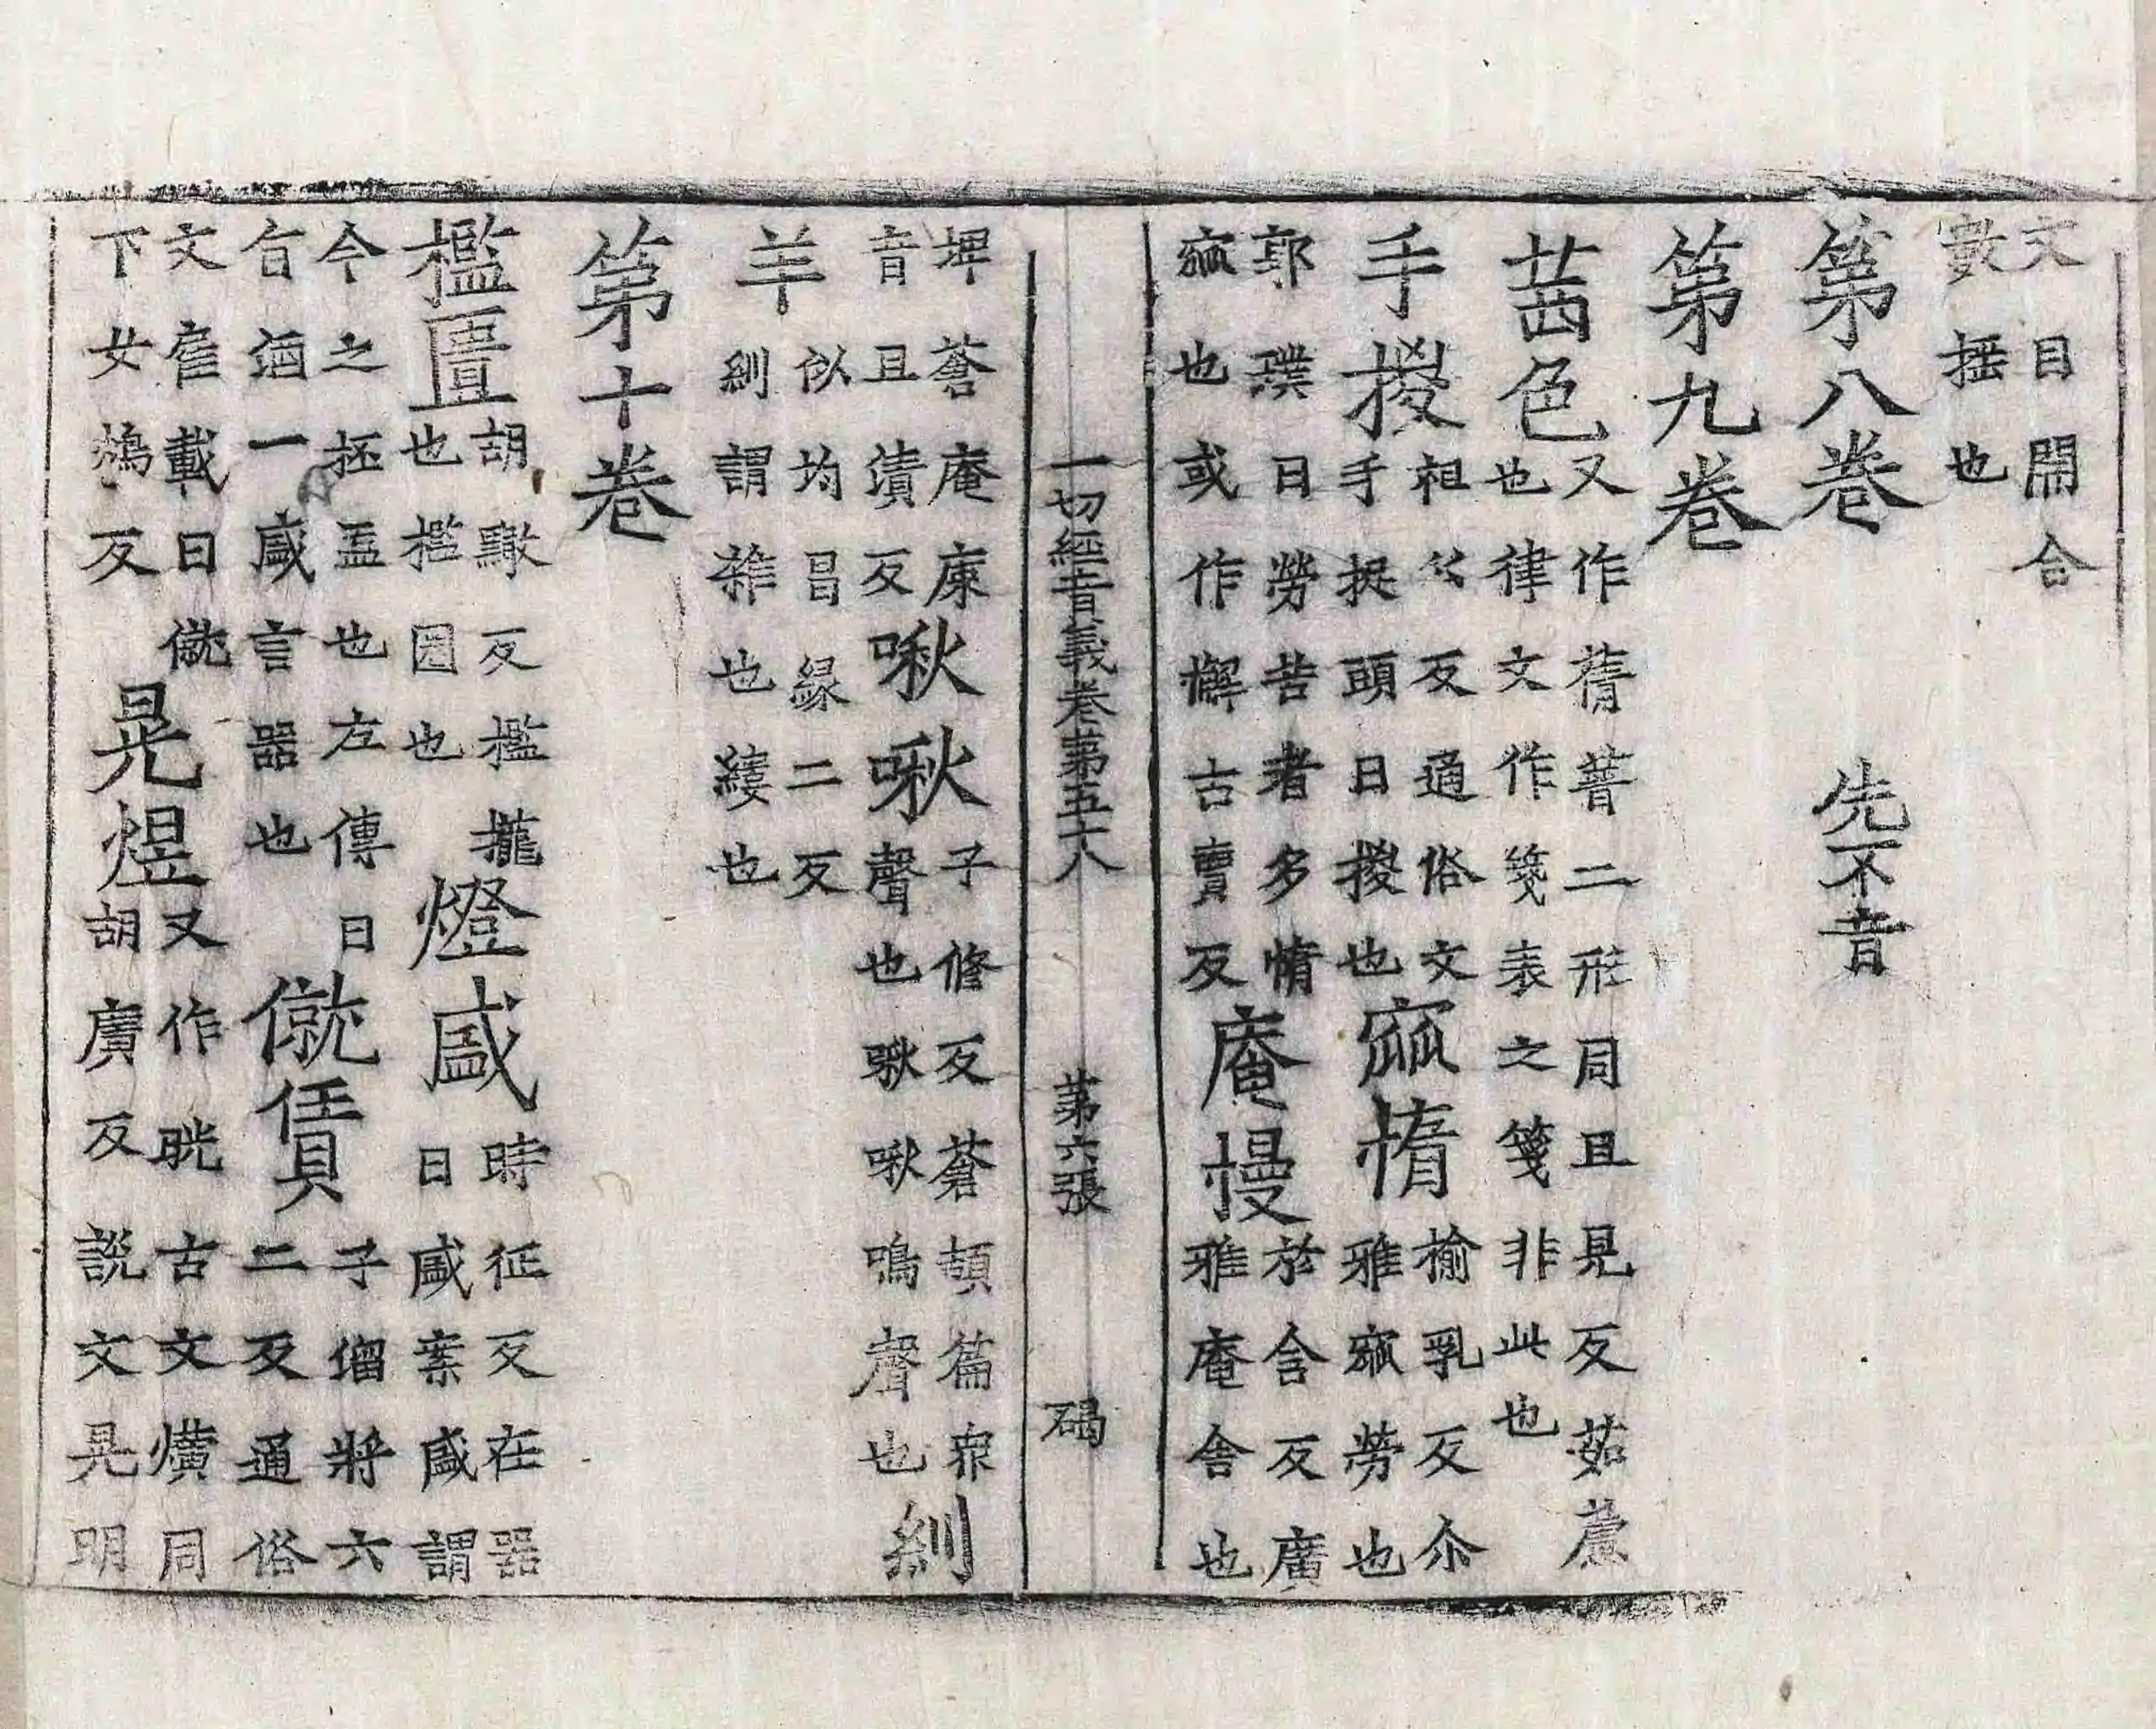 文目開合
數搖也
第八卷 先不音
第九卷
茜色 又作蒨𦽔二形同且見反茹藘
也律文作䇳表之箋非此也
手㧾 祖公反通俗文
手捉頭曰㧾也
窳惰 揄乳反尒
雅窳勞也
郭璞曰勞苦者多惰
窳也或作懈古賣反
庵慢 於含反廣
雅庵舍也
埤蒼庵廗
音且漬反
啾啾 子修反蒼頡篇衆
聲也啾啾鳴聲也
紃
羊 似均昌緣二反
紃謂雜也縷也
第十卷
檻匱 胡黤反檻櫳
也檻圈也
燈盛 時征反在器
曰盛案盛謂
今之抷盂也左傳曰
旨酒一盛言器也
僦賃 子溜將六
二反通俗
文雇載曰僦
下女鴆反
晃煜 又作晄古文爌同
胡廣反說文晃明
一切經音義卷第五十八 第六張 碣